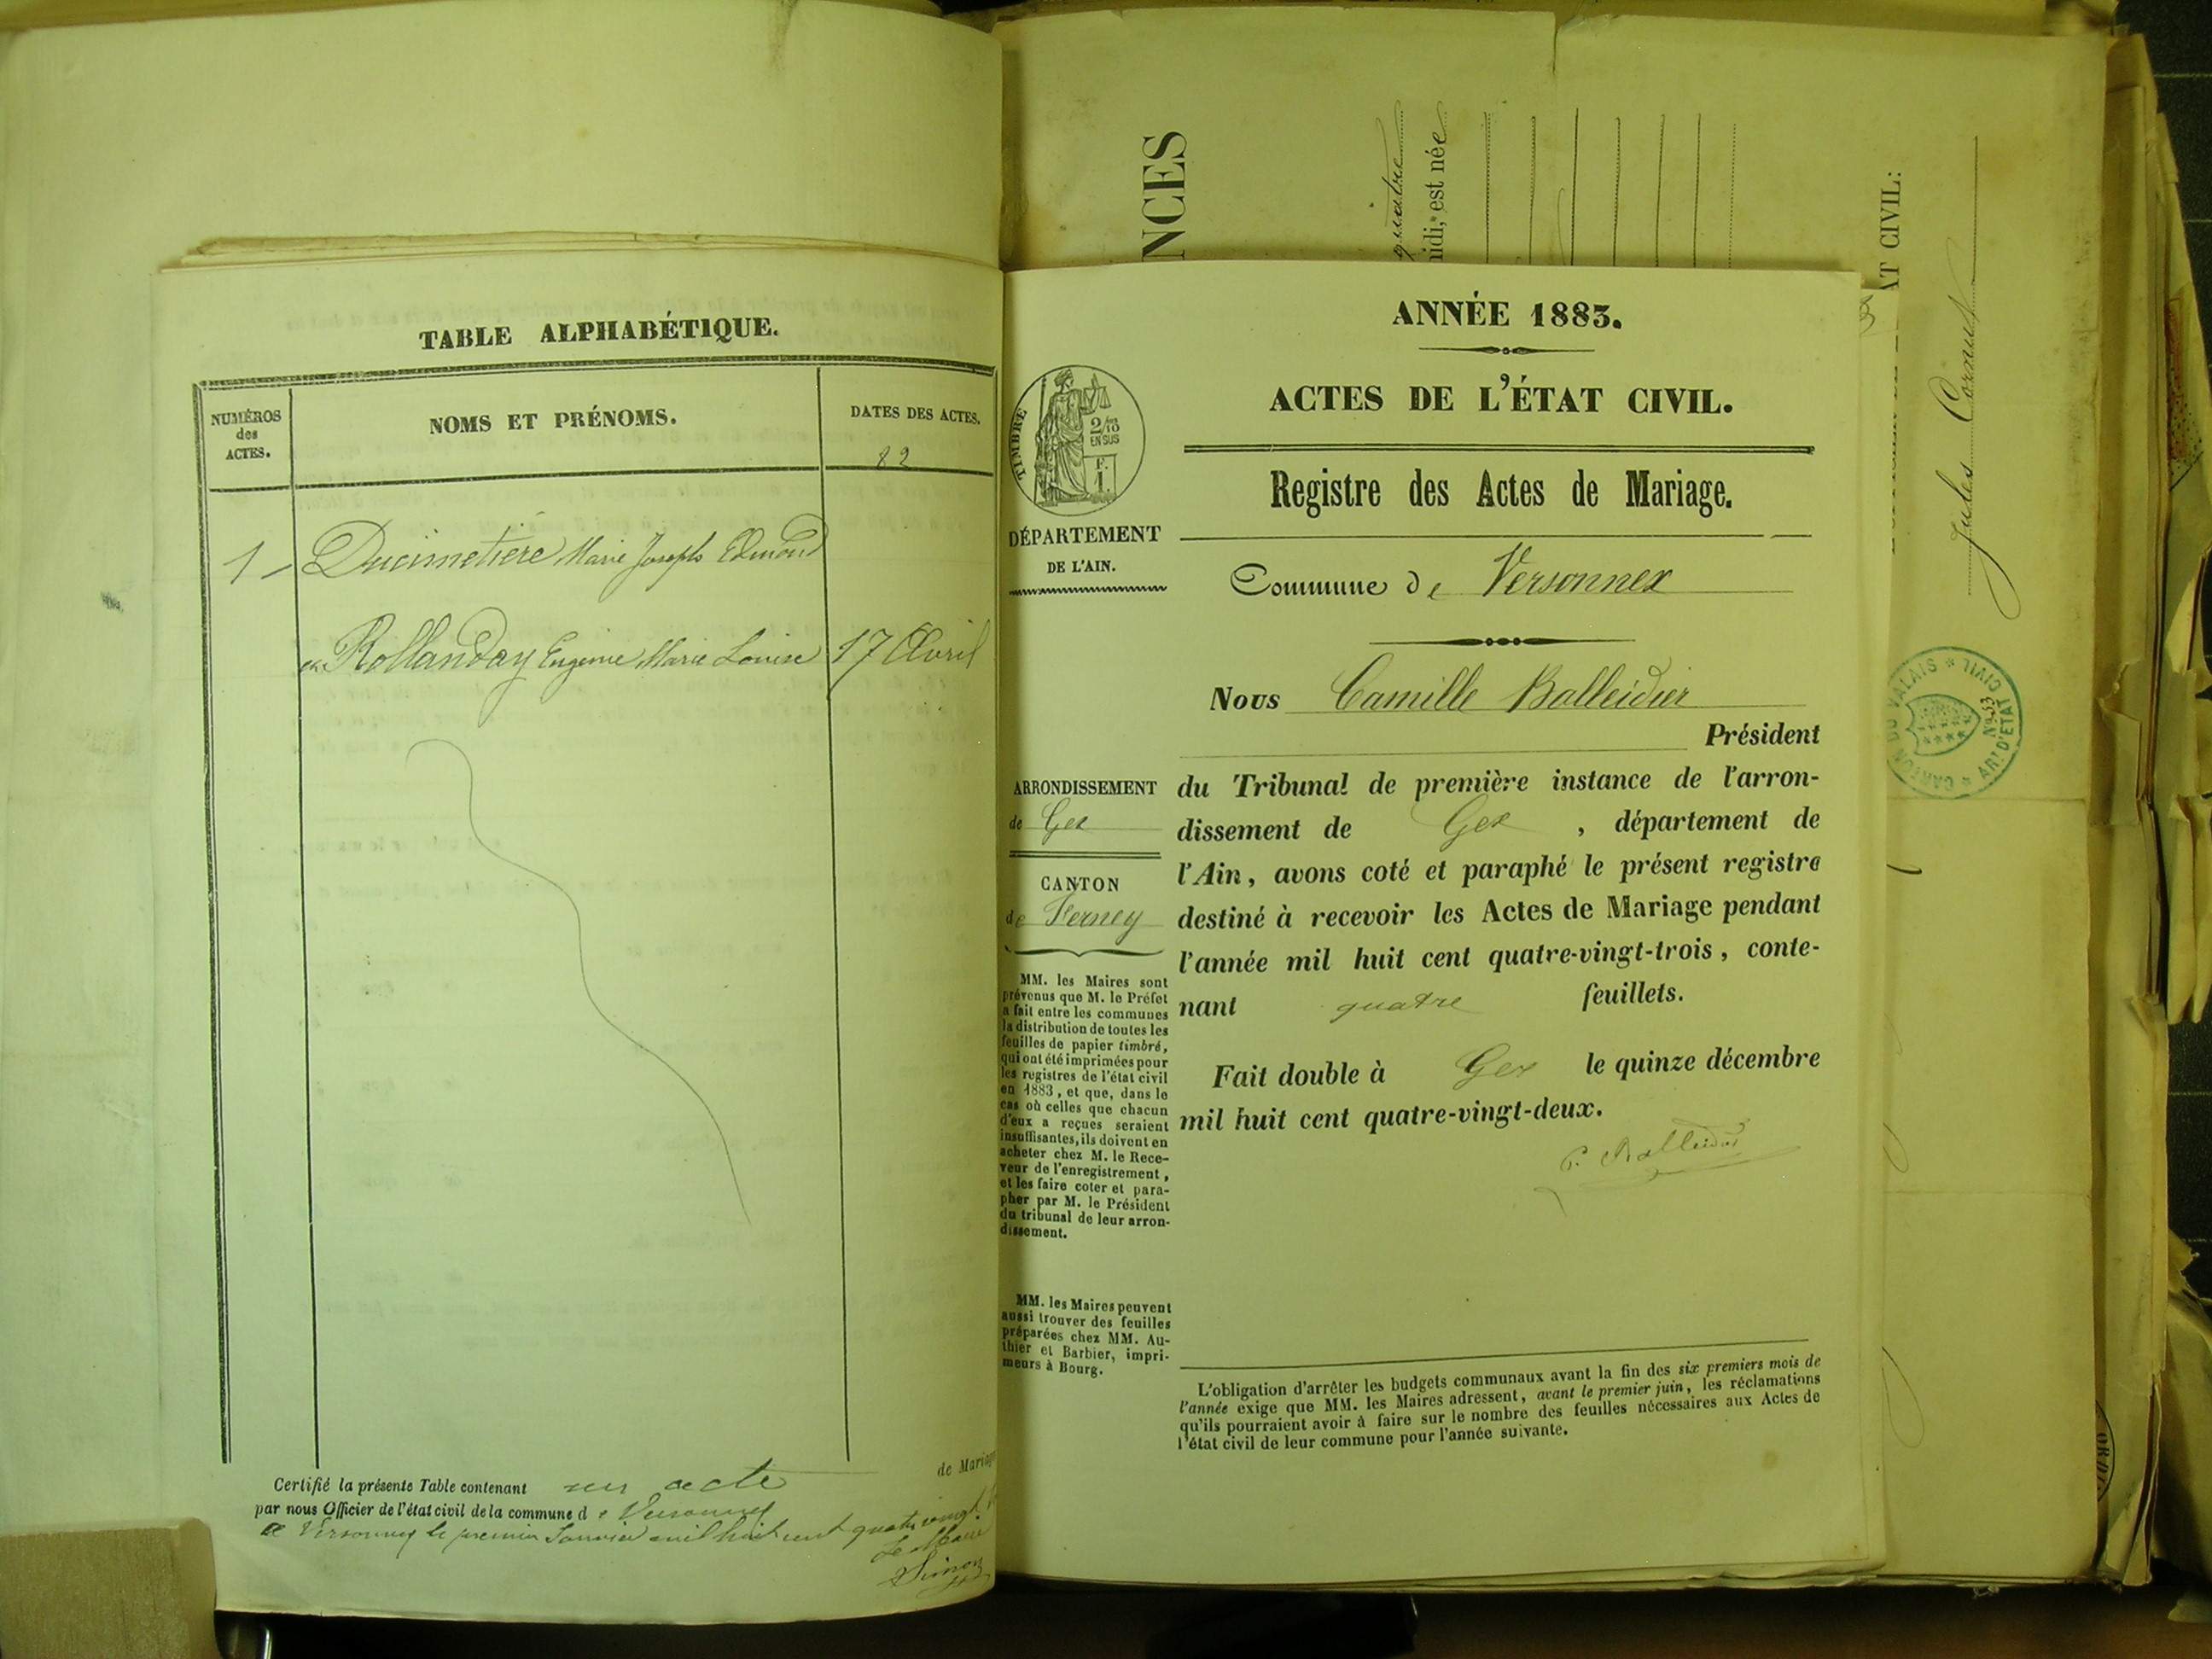 TABLE ALPHABÉTIQUE.
NUMÉROS
des
ACTES.
NOMS ET PRÉNOMS.
DATES DES ACTES.
82
1 - Ducimetière Marie Joseph Edmond
et Rollanday Eugenie Marie Louise 17 Avril
Certifié la présente Table contenant un acte de Mariage
par nous Officier de l'état civil de la commune de Versonnex
a Versonnex le premier Janvier mil huit cent quatre vingt
Le Maire
Simon
ANNÉE 1883.
ACTES DE L'ÉTAT CIVIL.
TIMBRE
2/10
EN SUS
F.
1.
Registre des Actes de Mariage.
DÉPARTEMENT
DE L'AIN.
Commune de Versonnex
Nous Camille Balleidier
Président
ARRONDISSEMENT
de Gex
CANTON
de Ferney
du Tribunal de première instance de l'arron-
dissement de Gex , département de
l'Ain, avons coté et paraphé le présent registre
destiné à recevoir les Actes de Mariage pendant
l'année mil huit cent quatre-vingt-trois, conte-
nant quatre feuillets.
Fait double à Gex le quinze décembre
mil huit cent quatre-vingt-deux.
C. Balleidier
MM. les Maires sont
prévenus que M. le Préfet
a fait entre les communes
la distribution de toutes les
feuilles de papier timbré,
qui ont été imprimées pour
les registres de l'état civil
en 1883, et que, dans le
cas où celles que chacun
d'eux a reçues seraient
insuffisantes, ils doivent en
acheter chez M. le Rece-
veur de l'enregistrement,
et les faire coter et para-
pher par M. le Président
du tribunal de leur arron-
dissement.
MM. les Maires peuvent
aussi trouver des feuilles
préparées chez MM. Au-
thier et Barbier, impri-
meurs à Bourg.
L'obligation d'arrêter les budgets communaux avant la fin des six premiers mois de
l'année exige que MM. les Maires adressent, avant le premier juin, les réclamations
qu'ils pourraient avoir à faire sur le nombre des feuilles nécessaires aux Actes de
l'état civil de leur commune pour l'année suivante.
NCES
quatre
midi, est née
AT CIVIL:
Jules Cornut
CANTON DU VALAIS * CIVIL
No 53
ARt D'ETAT